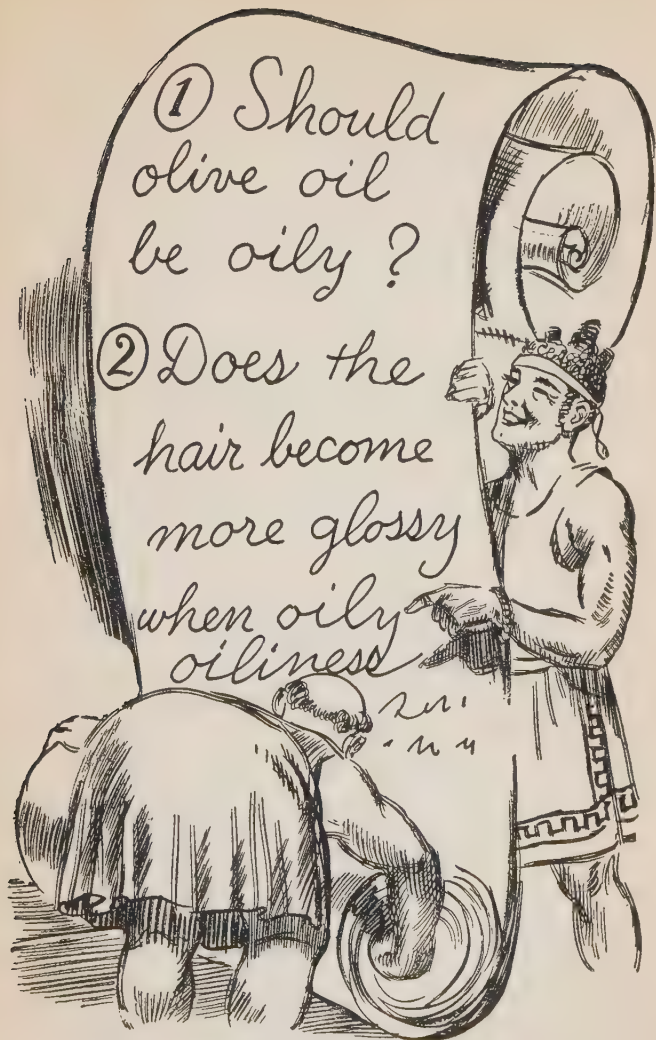 ① Should
olive oil
be oily ?
② Does the
hair become
more glossy
when oily
oiliness